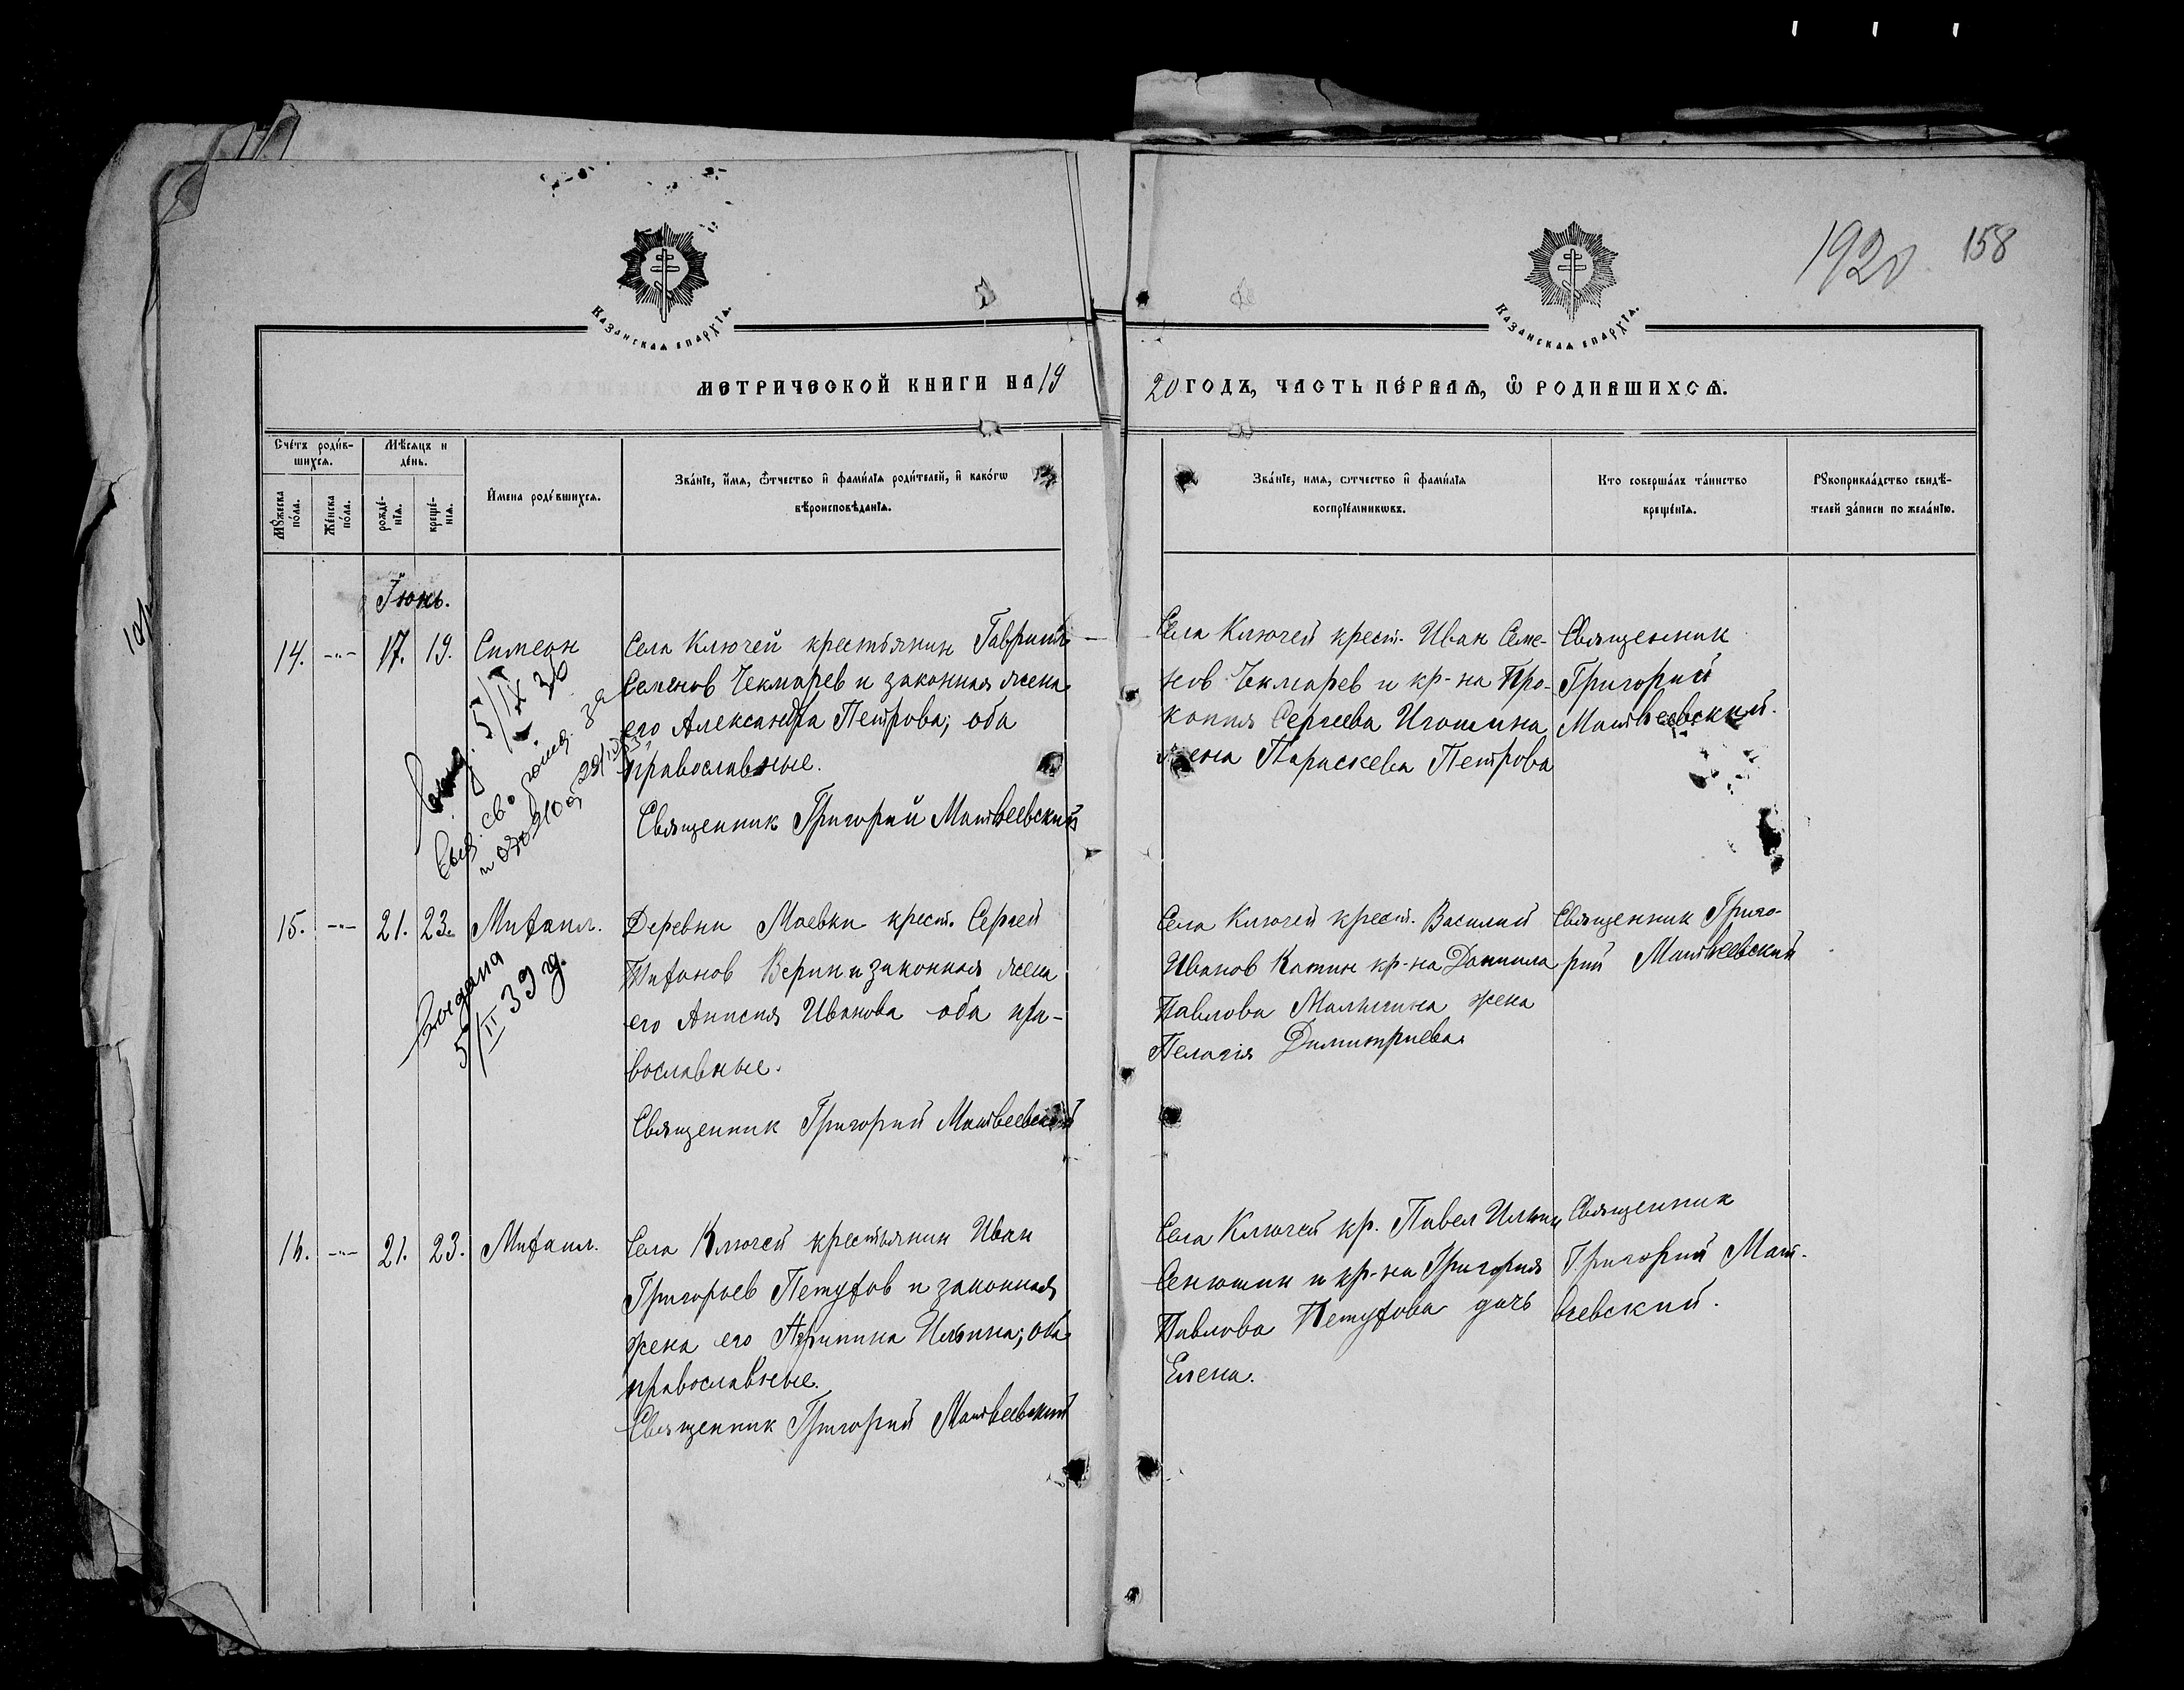 1920 158
Казанская епархїя.
Казанская епархїя.
МЕТРИЧЕСКОЙ КНИГИ НА 19
20 ГОДЪ, ЧАСТЬ ПЕ́РВАЯ, Ѿ РОДИВШИХСЯ.
Сче́тъ роди́в-
шихся.
Мѣ́сяцъ и
де́нь.
Мꙋ́жеска
по́ла.
Же́нска
по́ла.
рожде́-
нїя.
креще́-
нїя.
И҆мена роди́вшихся.
Зва́нїе, и҆́мя, ѻ҆́тчество и҆ фами́лїя роди́телей, и҆ како́гѡ
вѣроисповѣ́данїя.
Зва́нїе, имя, ѻтчество и҆ фами́лїя
воспрїе́мникѡвъ.
Кто соверша́лъ та́инство
креще́нїя.
Рꙋкоприкла́дство свидѣ́-
телей за́писи по жела́нїю.
Іюнь.
14. -"- 17. 19. Симеон
Села Ключей крестьянин Гавриил
Семенов Чекмарев и законная жена
его Александра Петрова; оба
православные.
Священник Григорий Матвеевский
Села Ключей крест. Иван Семе-
нов Чекмарев и кр-на Про-
копия Сергеева Игошина
жена Параскева Петрова
Священник
Григорий
Матвеевский.
5/IX 36
св.о за
и 29/
15. -"- 21. 23. Михаил.
Деревни Маевки крест. Сергей
Титонов Верин и законная жена
его Анисия Иванова оба пра-
вославные.
Священник Григорий Матвеевский
Села Ключей крест. Василий
Иванов Катин кр-на Даниила
Павлова Малыгина жена
Пелагія Димитриева.
Священник Григо-
рий Матвеевский
Выдана
5/II 39 г.
16. -"- 21. 23. Михаил.
Села Ключей крестьянин Иван
Григорьев Петухов и законная
жена его Агрипина Ильина; оба
православные.
Священник Григорий Матвеевский
Села Ключей кр. Павел Ильин
Сенюшин и кр-на Григория
Павлова Петухова дочь
Елена.
Священник
Григорий Мат-
веевский.